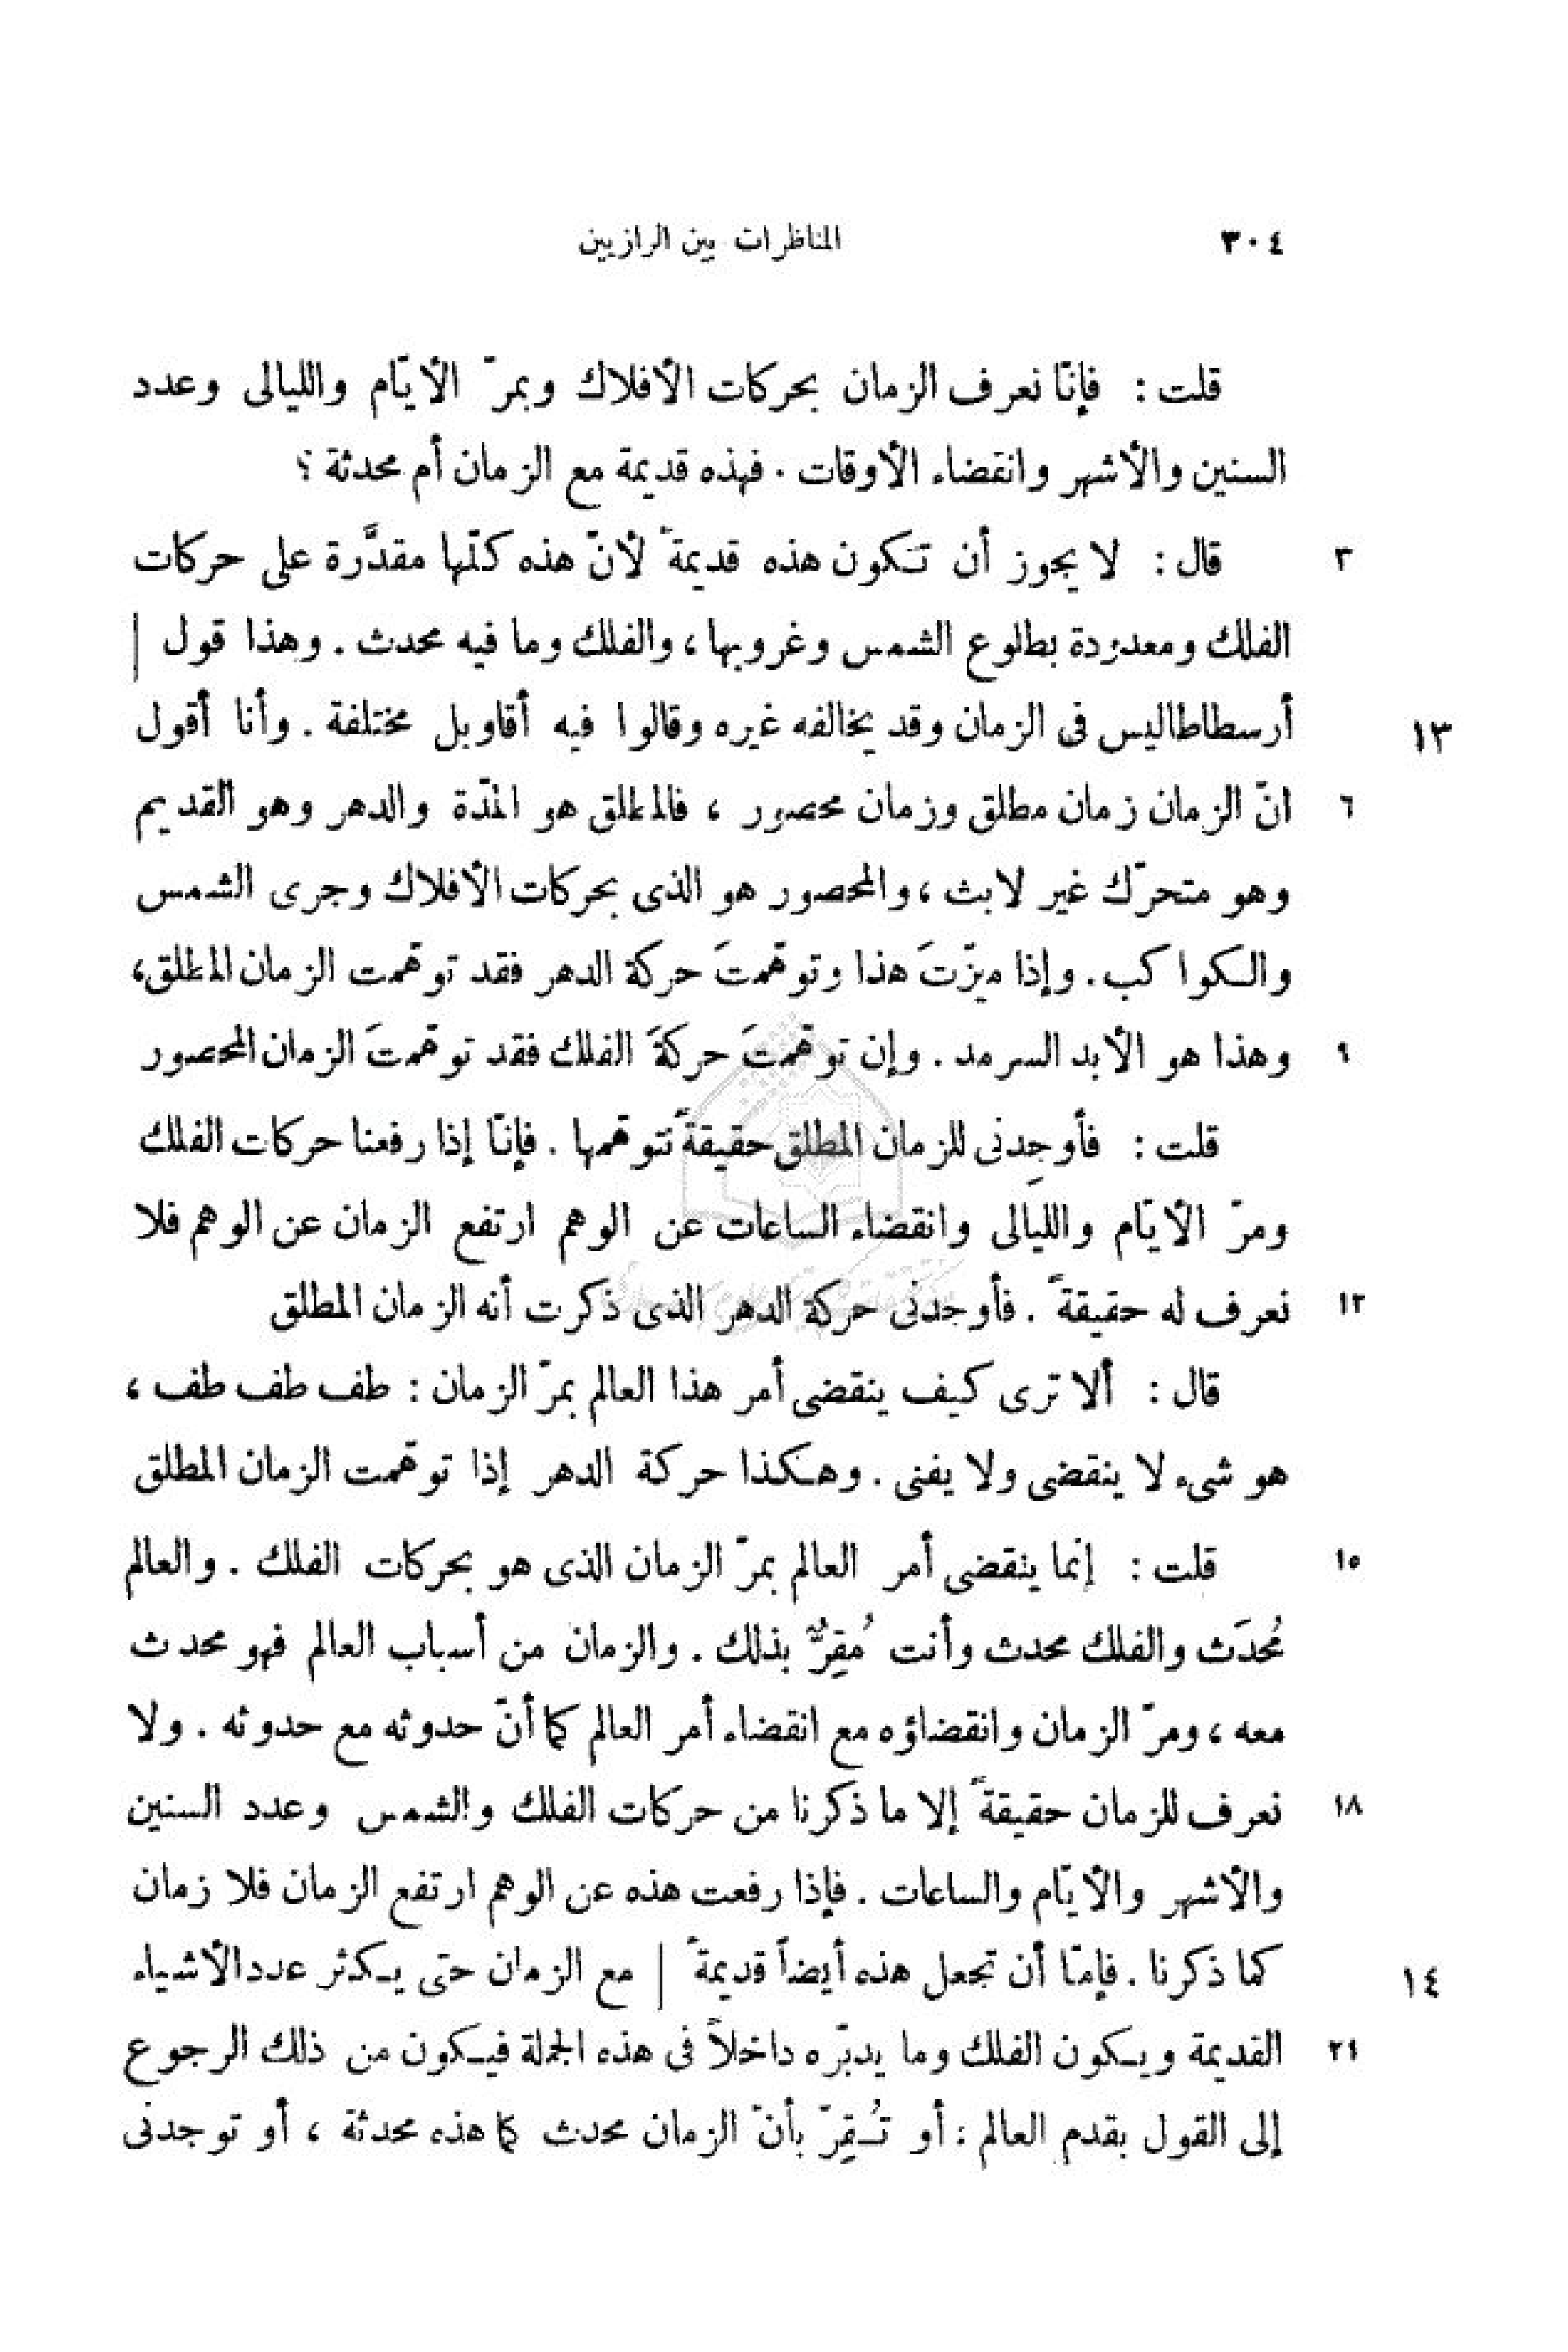 ٣٠٤ المناظرات بين الرازيين
قلت : فإنّا نعرف الزمان بحركات الأفلاك وبمرّ الأيّام والليالى وعدد
السنين والأشهر وانقضاء الأوقات . فهذه قديمة مع الزمان أم محدثة ؟
٣ قال : لا يجوز أن تكون هذه قديمةً لأنّ هذه كلّها مقدَّرة على حركات
الفلك ومعدودة بطلوع الشمس وغروبها ، والفلك وما فيه محدث . وهذا قول |
١٣ أرسطاطاليس فى الزمان وقد يخالفه غيره وقالوا فيه أقاويل مختلفة . وأنا أقول
٦ انّ الزمان زمان مطلق وزمان محصور ، فالمطلق هو المدّة والدهر وهو القديم
وهو متحرّك غير لابث ، والمحصور هو الذى بحركات الأفلاك وجرى الشمس
والكواكب . وإذا ميزّتَ هذا وتوهّمتَ حركة الدهر فقد توهّمت الزمان المطلق ،
٩ وهذا هو الأبد السرمد . وإن توهّمتَ حركةَ الفلك فقد توهّمتَ الزمان المحصور
قلت : فأوجِدنى للزمان المطلق حقيقةً نتوهّمها . فإنّا إذا رفعنا حركات الفلك
ومرّ الأيّام والليالى وانقضاء الساعات عن الوهم ارتفع الزمان عن الوهم فلا
١٢ نعرف له حقيقةً . فأوجدنى حركة الدهر الذى ذكرت أنه الزمان المطلق
قال : ألا ترى كيف ينقضى أمر هذا العالم بمرّ الزمان : طف طف طف ،
هو شىء لا ينقضى ولا يفنى . وهكذا حركة الدهر إذا توهّمت الزمان المطلق
١٥ قلت : إنّما ينقضى أمر العالم بمرّ الزمان الذى هو بحركات الفلك . والعالم
مُحدَث والفلك محدث وأنت مُقِرٌّ بذلك . والزمان من أسباب العالم فهو محدث
معه ، ومرّ الزمان وانقضاؤه مع انقضاء أمر العالم كما أنّ حدوثه مع حدوثه . ولا
١٨ نعرف للزمان حقيقةً إلا ما ذكرنا من حركات الفلك والشمس وعدد السنين
والأشهر والأيّام والساعات . فإذا رفعت هذه عن الوهم ارتفع الزمان فلا زمان
١٤ كما ذكرنا . فإمّا أن تجعل هذه أيضاً قديمةً | مع الزمان حتى يكثر عدد الأشياء
٢١ القديمة ويكون الفلك وما يدبّره داخلاً فى هذه الجملة فيكون من ذلك الرجوع
إلى القول بقدم العالم : أو تُقِرّ بأنّ الزمان محدث كما هذه محدثة ، أو توجدنى